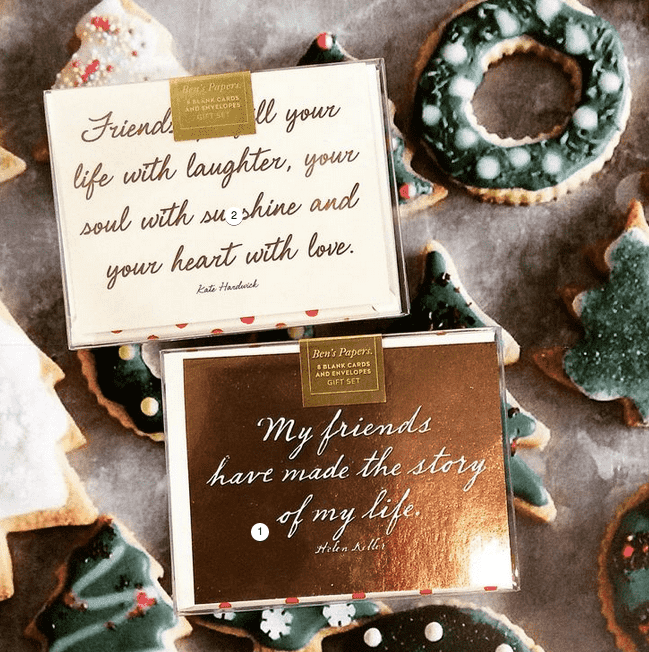 Ben's Papers.
8 BLANK CARDS
AND ENVELOPES
GIFT SET
Friends fill your
life with laughter, your
soul with sunshine and
your heart with love.
Kate Hardwick
2
Ben's Papers.
8 BLANK CARDS
AND ENVELOPES
GIFT SET
My friends
have made the story
of my life.
Helen Keller
1